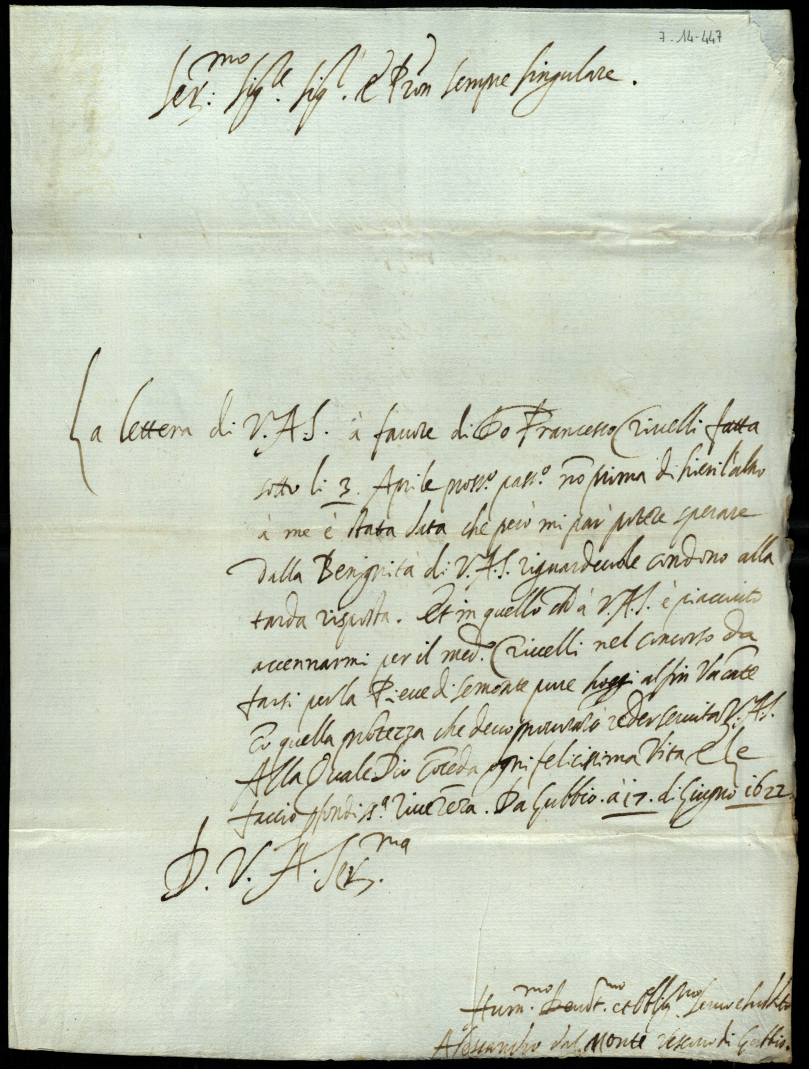 7-14-447
Ser.mo Sig.re Sig.r e Pron sempre singulare.
La lettera di V.A.S. à favore di Gio Francesco Crivelli fatta
sotto li 3. Aprile pross.o pass.o nõ prima di hieri l'altro
à me è stata data che però mi par potere sperare
dalla Benignità di V.A.S. riguardevole condono alla
tarda risposta. Et in quello ch à V.A.S. è piacciuto
accennarmi per il med.o Crivelli nel concorso da
farsi per la Pieve di Semonte pure hoggi al fin vacãte
cõ quella prõtezza che devo procurarò reder servita V.A.S.
Alla Quale Dio cõceda ogni felicissima Vita e le
faccio pfondiss.a riverẽza. Da Gubbio. à 17. di Giugno 1622.
D. V. A. Ser.ma
Hum.mo Devot.mo et Obblig.mo Servo e
Alessandro dal Monte Vescovo di Gubbio.